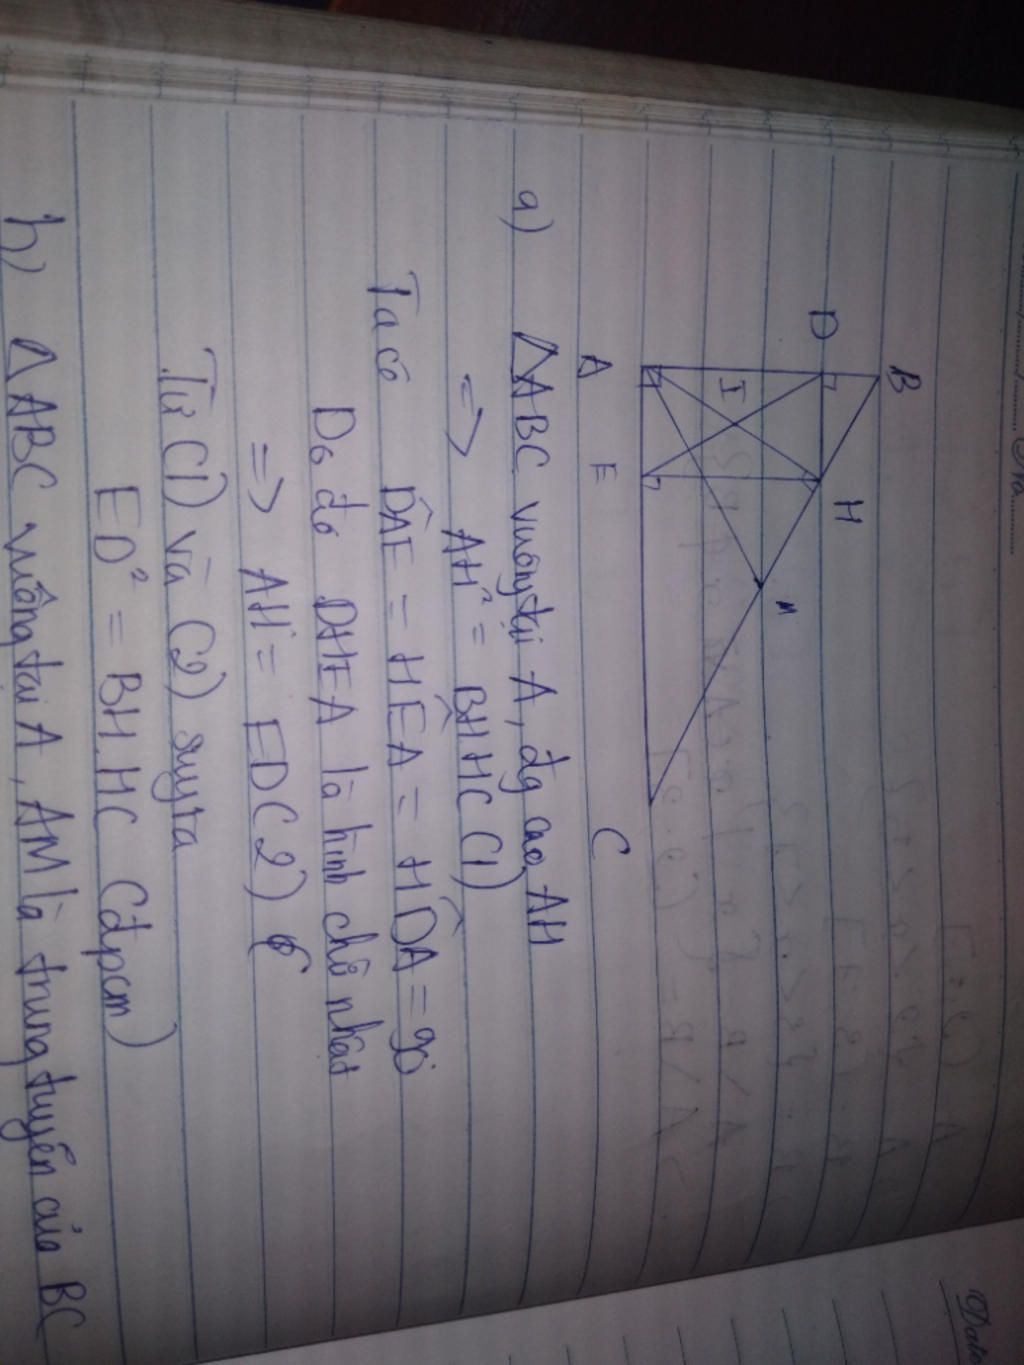 B
D
H
I
M
A
E
C
a) ΔABC vuông tại A, đg cao AH
=> AH² = BH.HC (1)
Ta có DÂE = HÊA = HD̂A = 90
Do đó DHEA là hình chữ nhật
=> AH = ED (2)
Từ (1) và (2) suy ra
ED² = BH.HC (đpcm)
b) ΔABC vuông tại A, AM là trung tuyến của BC
Date